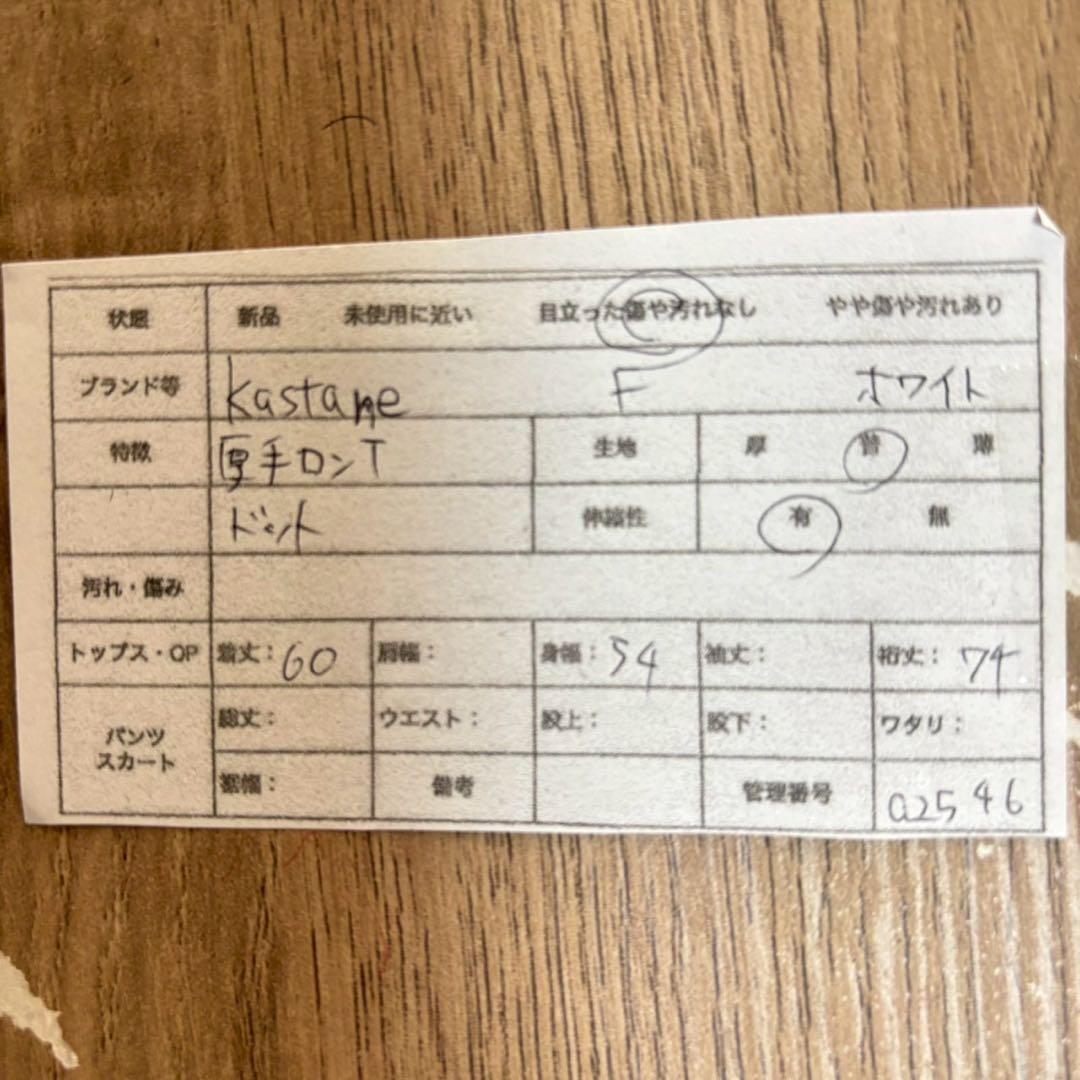 状態 新品 未使用に近い 目立った傷や汚れなし やや傷や汚れあり
ブランド等 kastane F ホワイト
特徴 厚手ロンT 生地 厚 普 薄
ドット 伸縮性 有 無
汚れ・傷み
トップス・OP 着丈：60 肩幅： 身幅：54 袖丈： 裄丈：74
パンツ スカート 総丈： ウエスト： 股上： 股下： ワタリ：
裾幅： 備考 管理番号 a2546